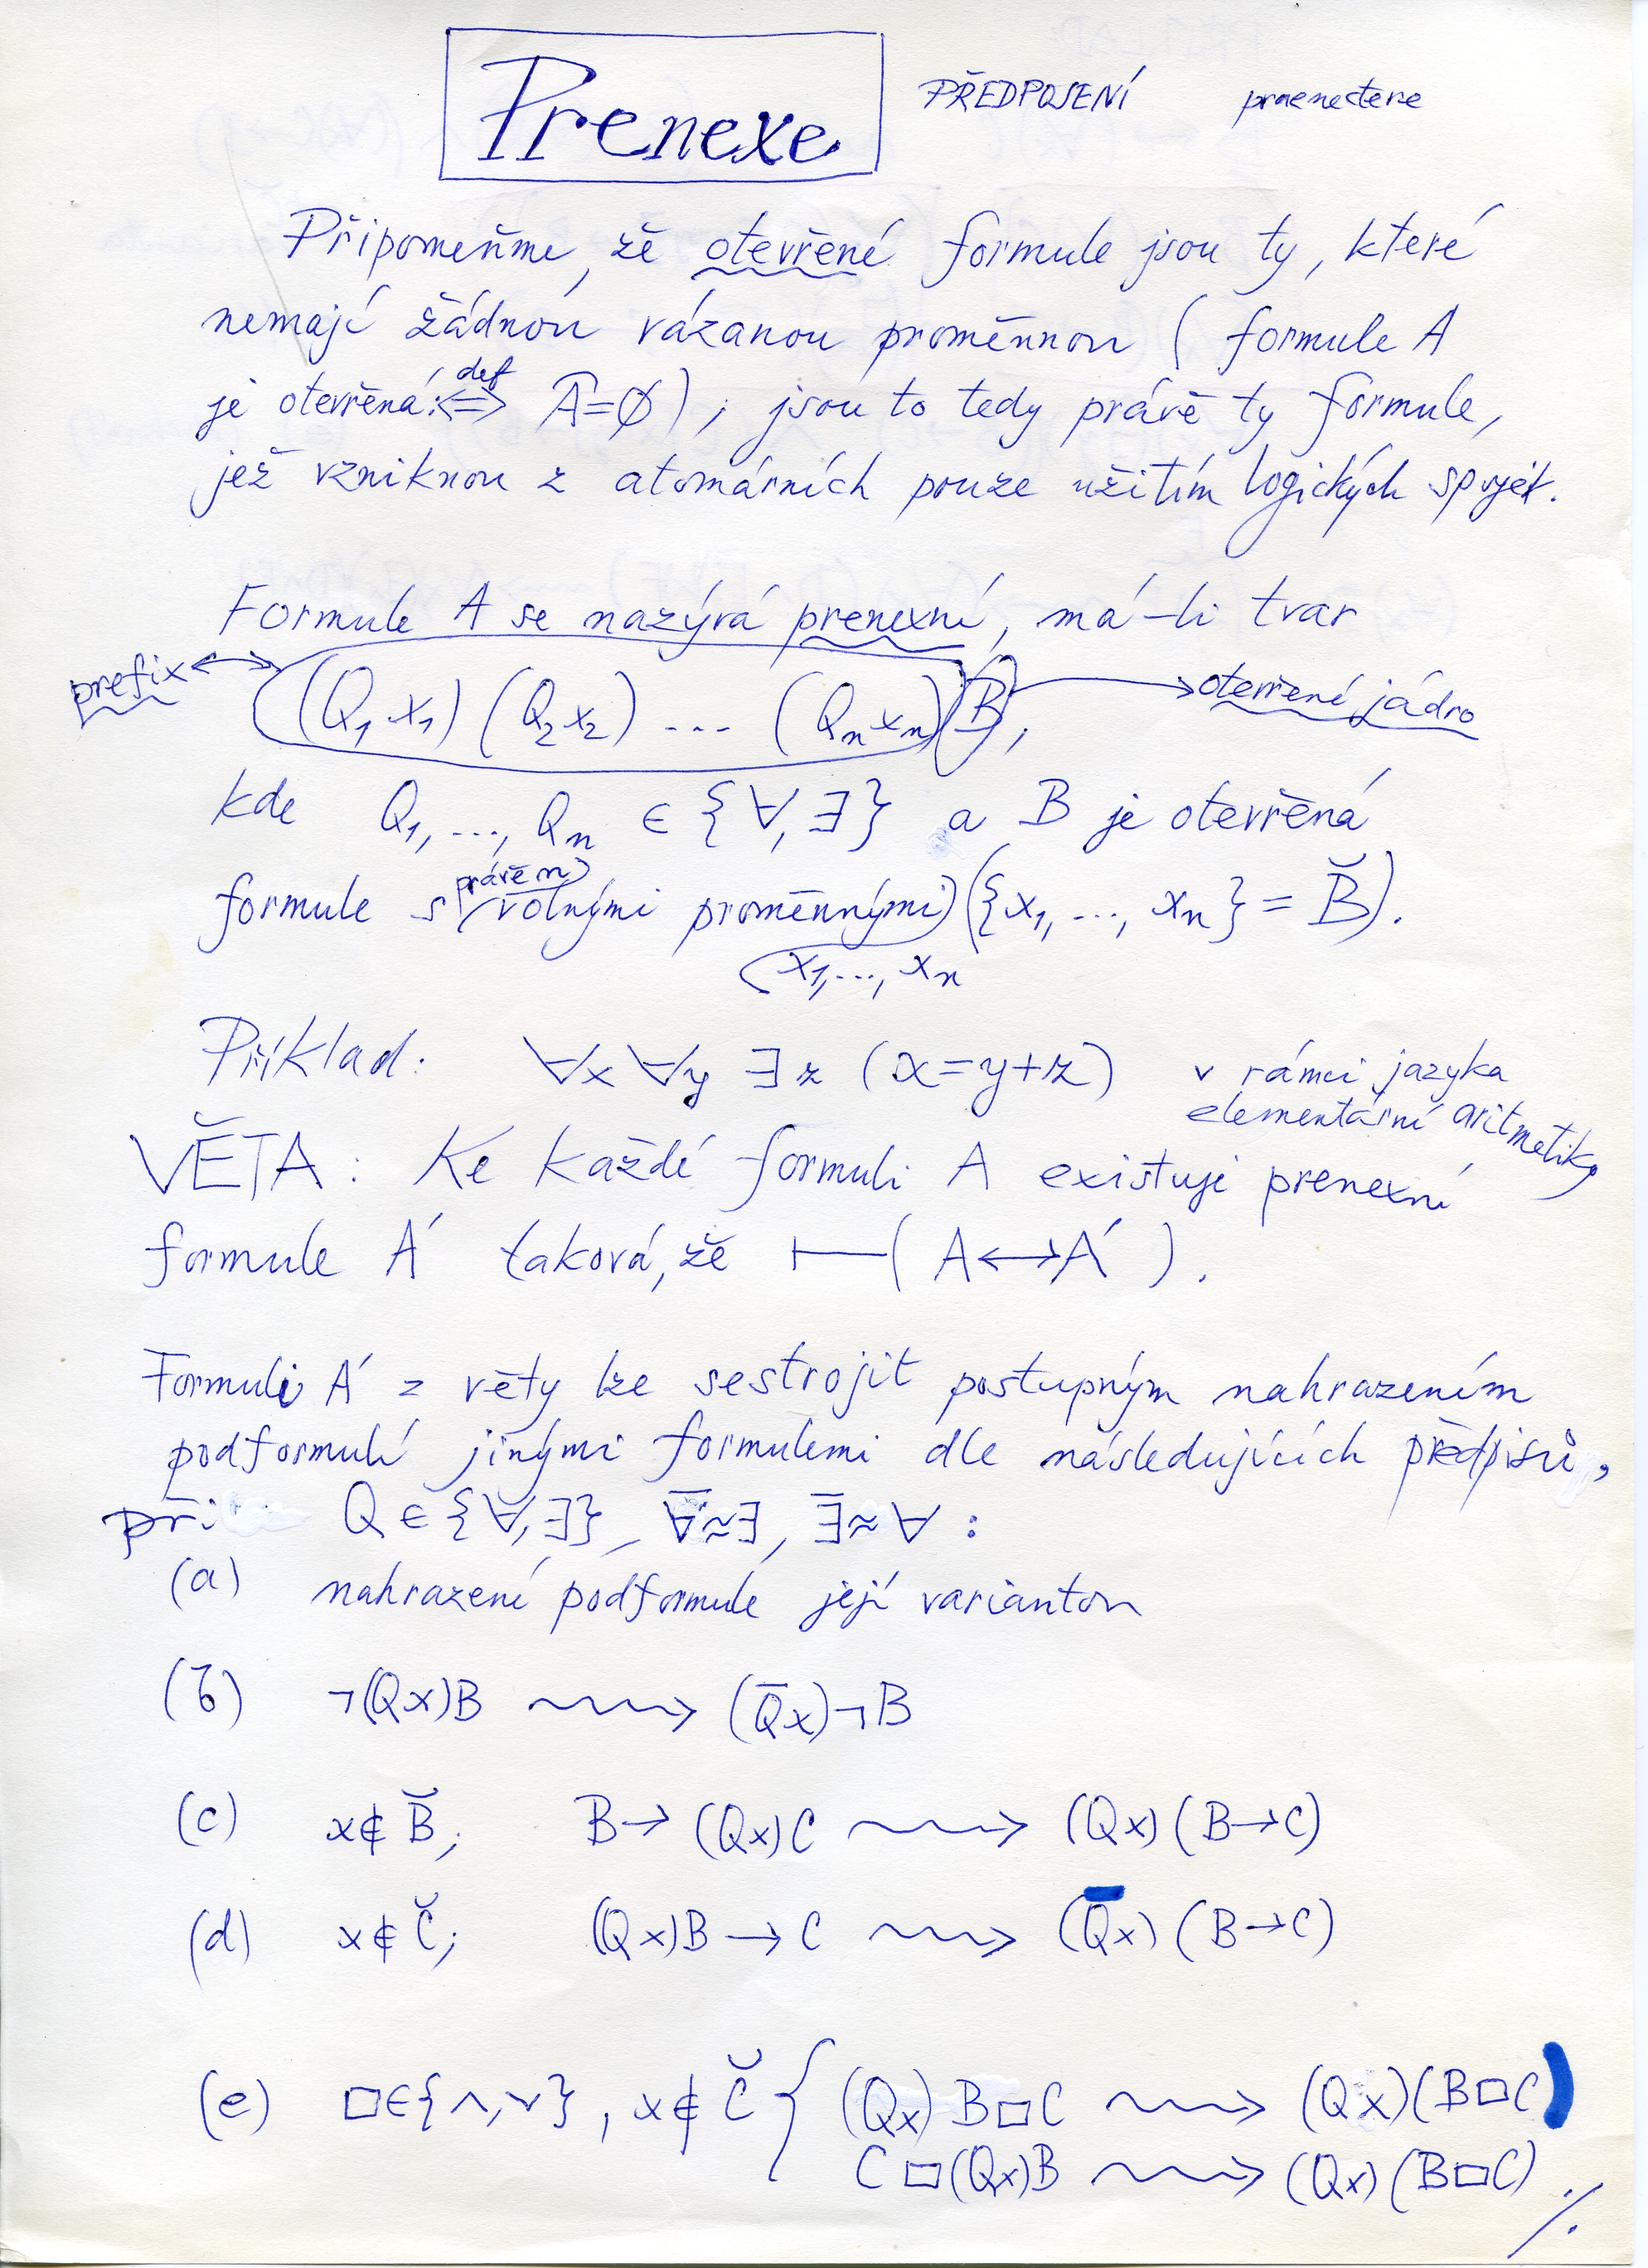 Prenexe
PŘEDPOJENÍ praenectere
Připomeňme, že otevřené formule jsou ty, které
nemají žádnou vázanou proměnnou ( formule A
je otevřená :⟺ def Â=∅ ) ; jsou to tedy právě ty formule,
jež vzniknou z atomárních pouze užitím logických spojek.
Formule A se nazývá prenexní, má-li tvar
prefix ↔ (Q₁x₁) (Q₂x₂) ... (Qₙxₙ) B, → otevřené jádro
kde Q₁, ..., Qₙ ∈ {∀, ∃} a B je otevřená
formule s právě n volnými proměnnými x₁, ..., xₙ ({x₁, ..., xₙ} = B̆).
Příklad: ∀x ∀y ∃z (x=y+z) v rámci jazyka
elementární aritmetiky
VĚTA: Ke každé formuli A existuje prenexní
formule A´ taková, že ⊢( A↔A´ ).
Formuli A´ z věty lze sestrojit postupným nahrazením
podformulí jinými formulemi dle následujících předpisů,
při Q ∈ {∀, ∃}, ∀̄≈∃, ∃̄≈∀ :
(a) nahrazení podformule její variantou
(b) ¬(Qx)B ⇝ (Q̄x)¬B
(c) x∉B̆; B→(Qx)C ⇝ (Qx)(B→C)
(d) x∉C̆; (Qx)B→C ⇝ (Q̄x)(B→C)
(e) □∈{∧,∨}, x∉C̆ { (Qx)B□C ⇝ (Qx)(B□C)
C□(Qx)B ⇝ (Qx)(B□C)
./.